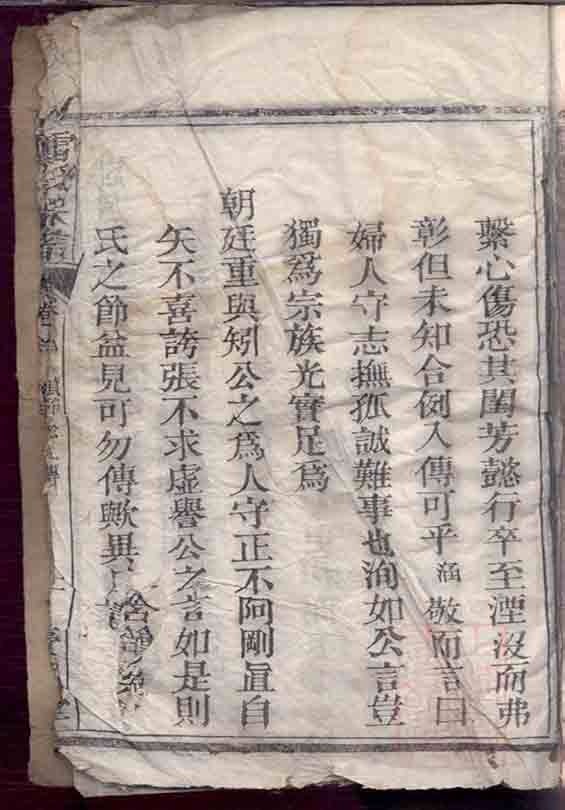 繫心傷恐其閨芳懿行卒至湮沒而弗
彰但未知合例入傳可乎涵敬而言曰
婦人守志撫孤誠難事也洵如公言豈
獨爲宗族光實足爲
朝廷重與矧公之爲人守正不阿剛直自
矢不喜誇張不求虛譽公之言如是則
氏之節益見可勿傳歟異